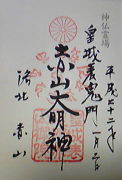 神仏霊場
平成二十二年
一月二日
皇城表鬼門
赤山大明神
洛北 赤山